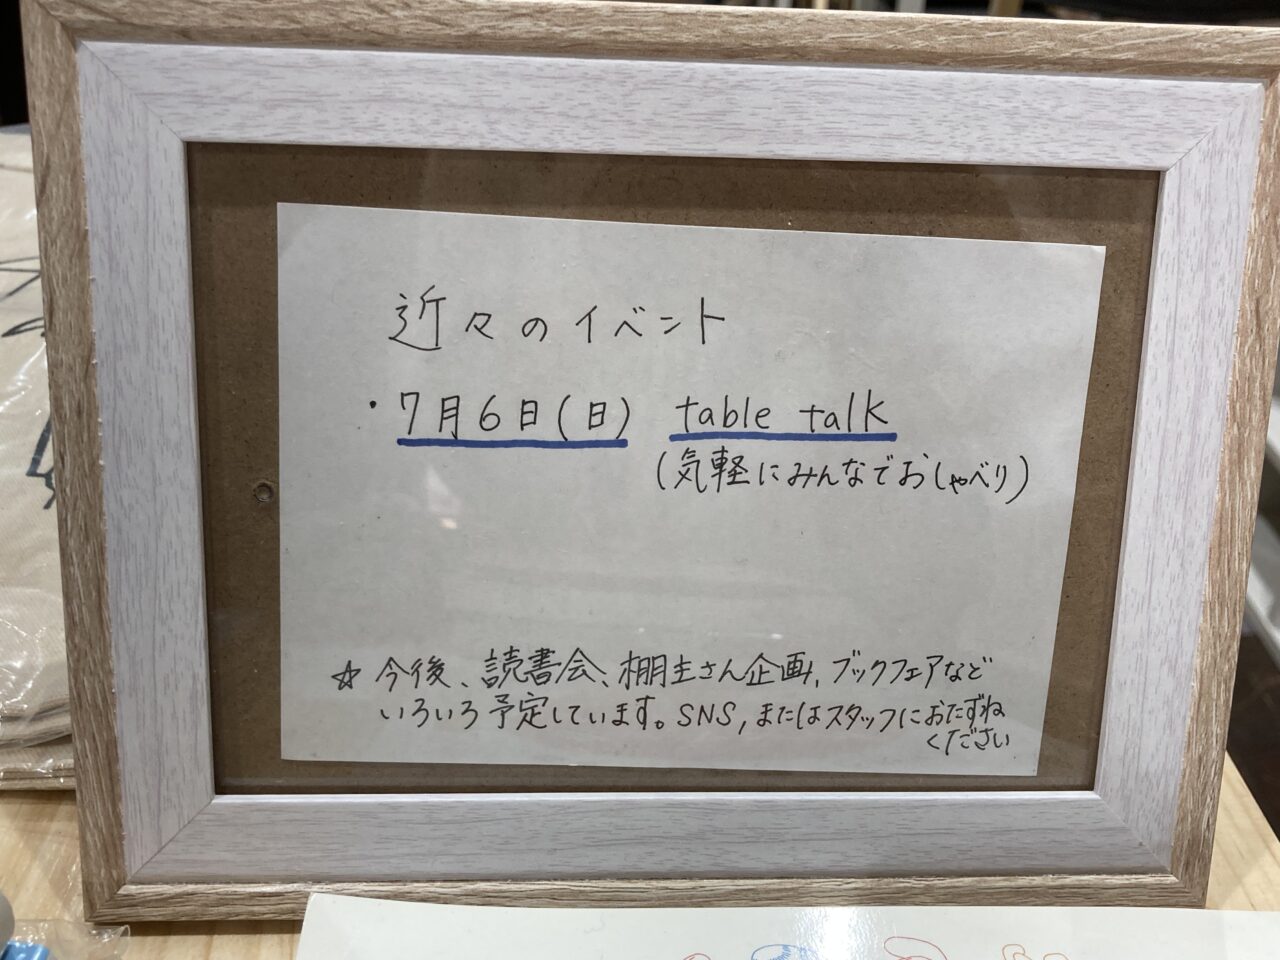 近々のイベント
・7月6日(日) table talk
(気軽にみんなでおしゃべり)
☆今後、読書会、棚主さん企画、ブックフェアなど
いろいろ予定しています。SNS,またはスタッフにおたずね
ください